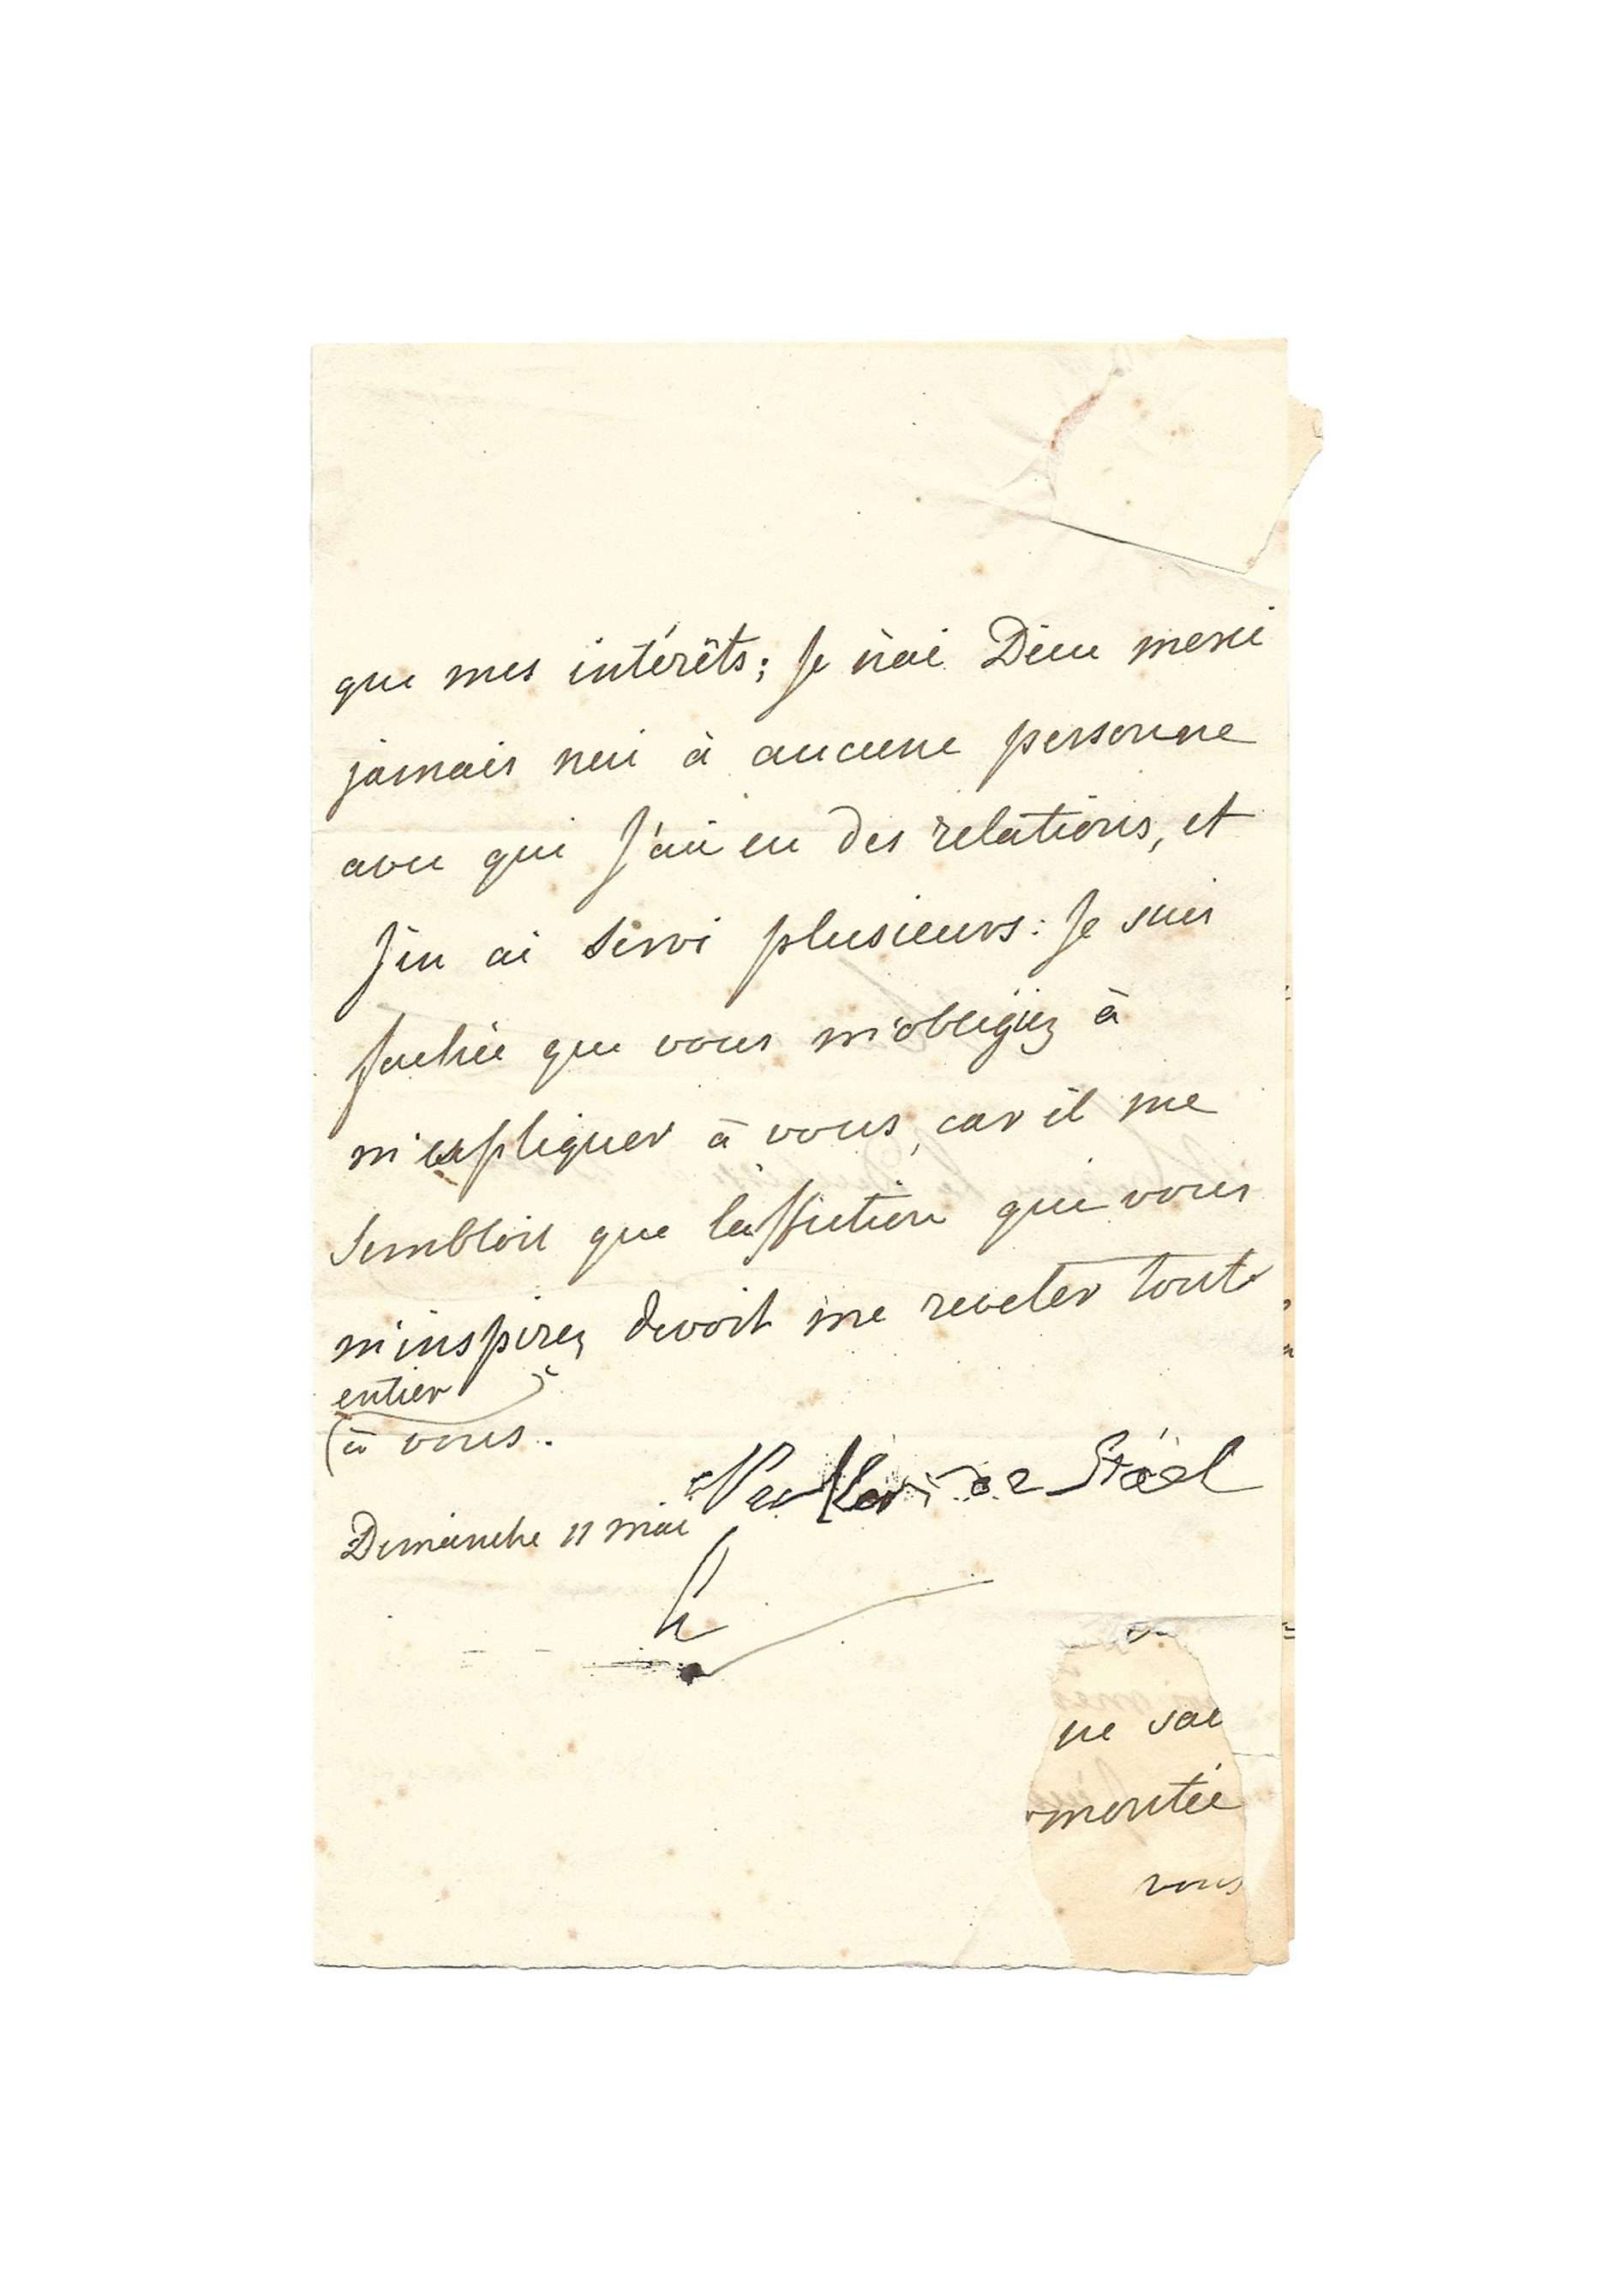 que mes intérêts; Je n'ai Dieu merci
jamais nui à aucune personne
avec qui J'ai eu des relations, et
J'en ai servi plusieurs: Je suis
fachée que vous m'obligiez à
m'expliquer à vous, car il me
sembloit que l'affection que vous
m'inspirez devoit me reveler tout
entier
à vous.
Necker de Stáel
Dimanche 11 mai
ne sai
montée
vous